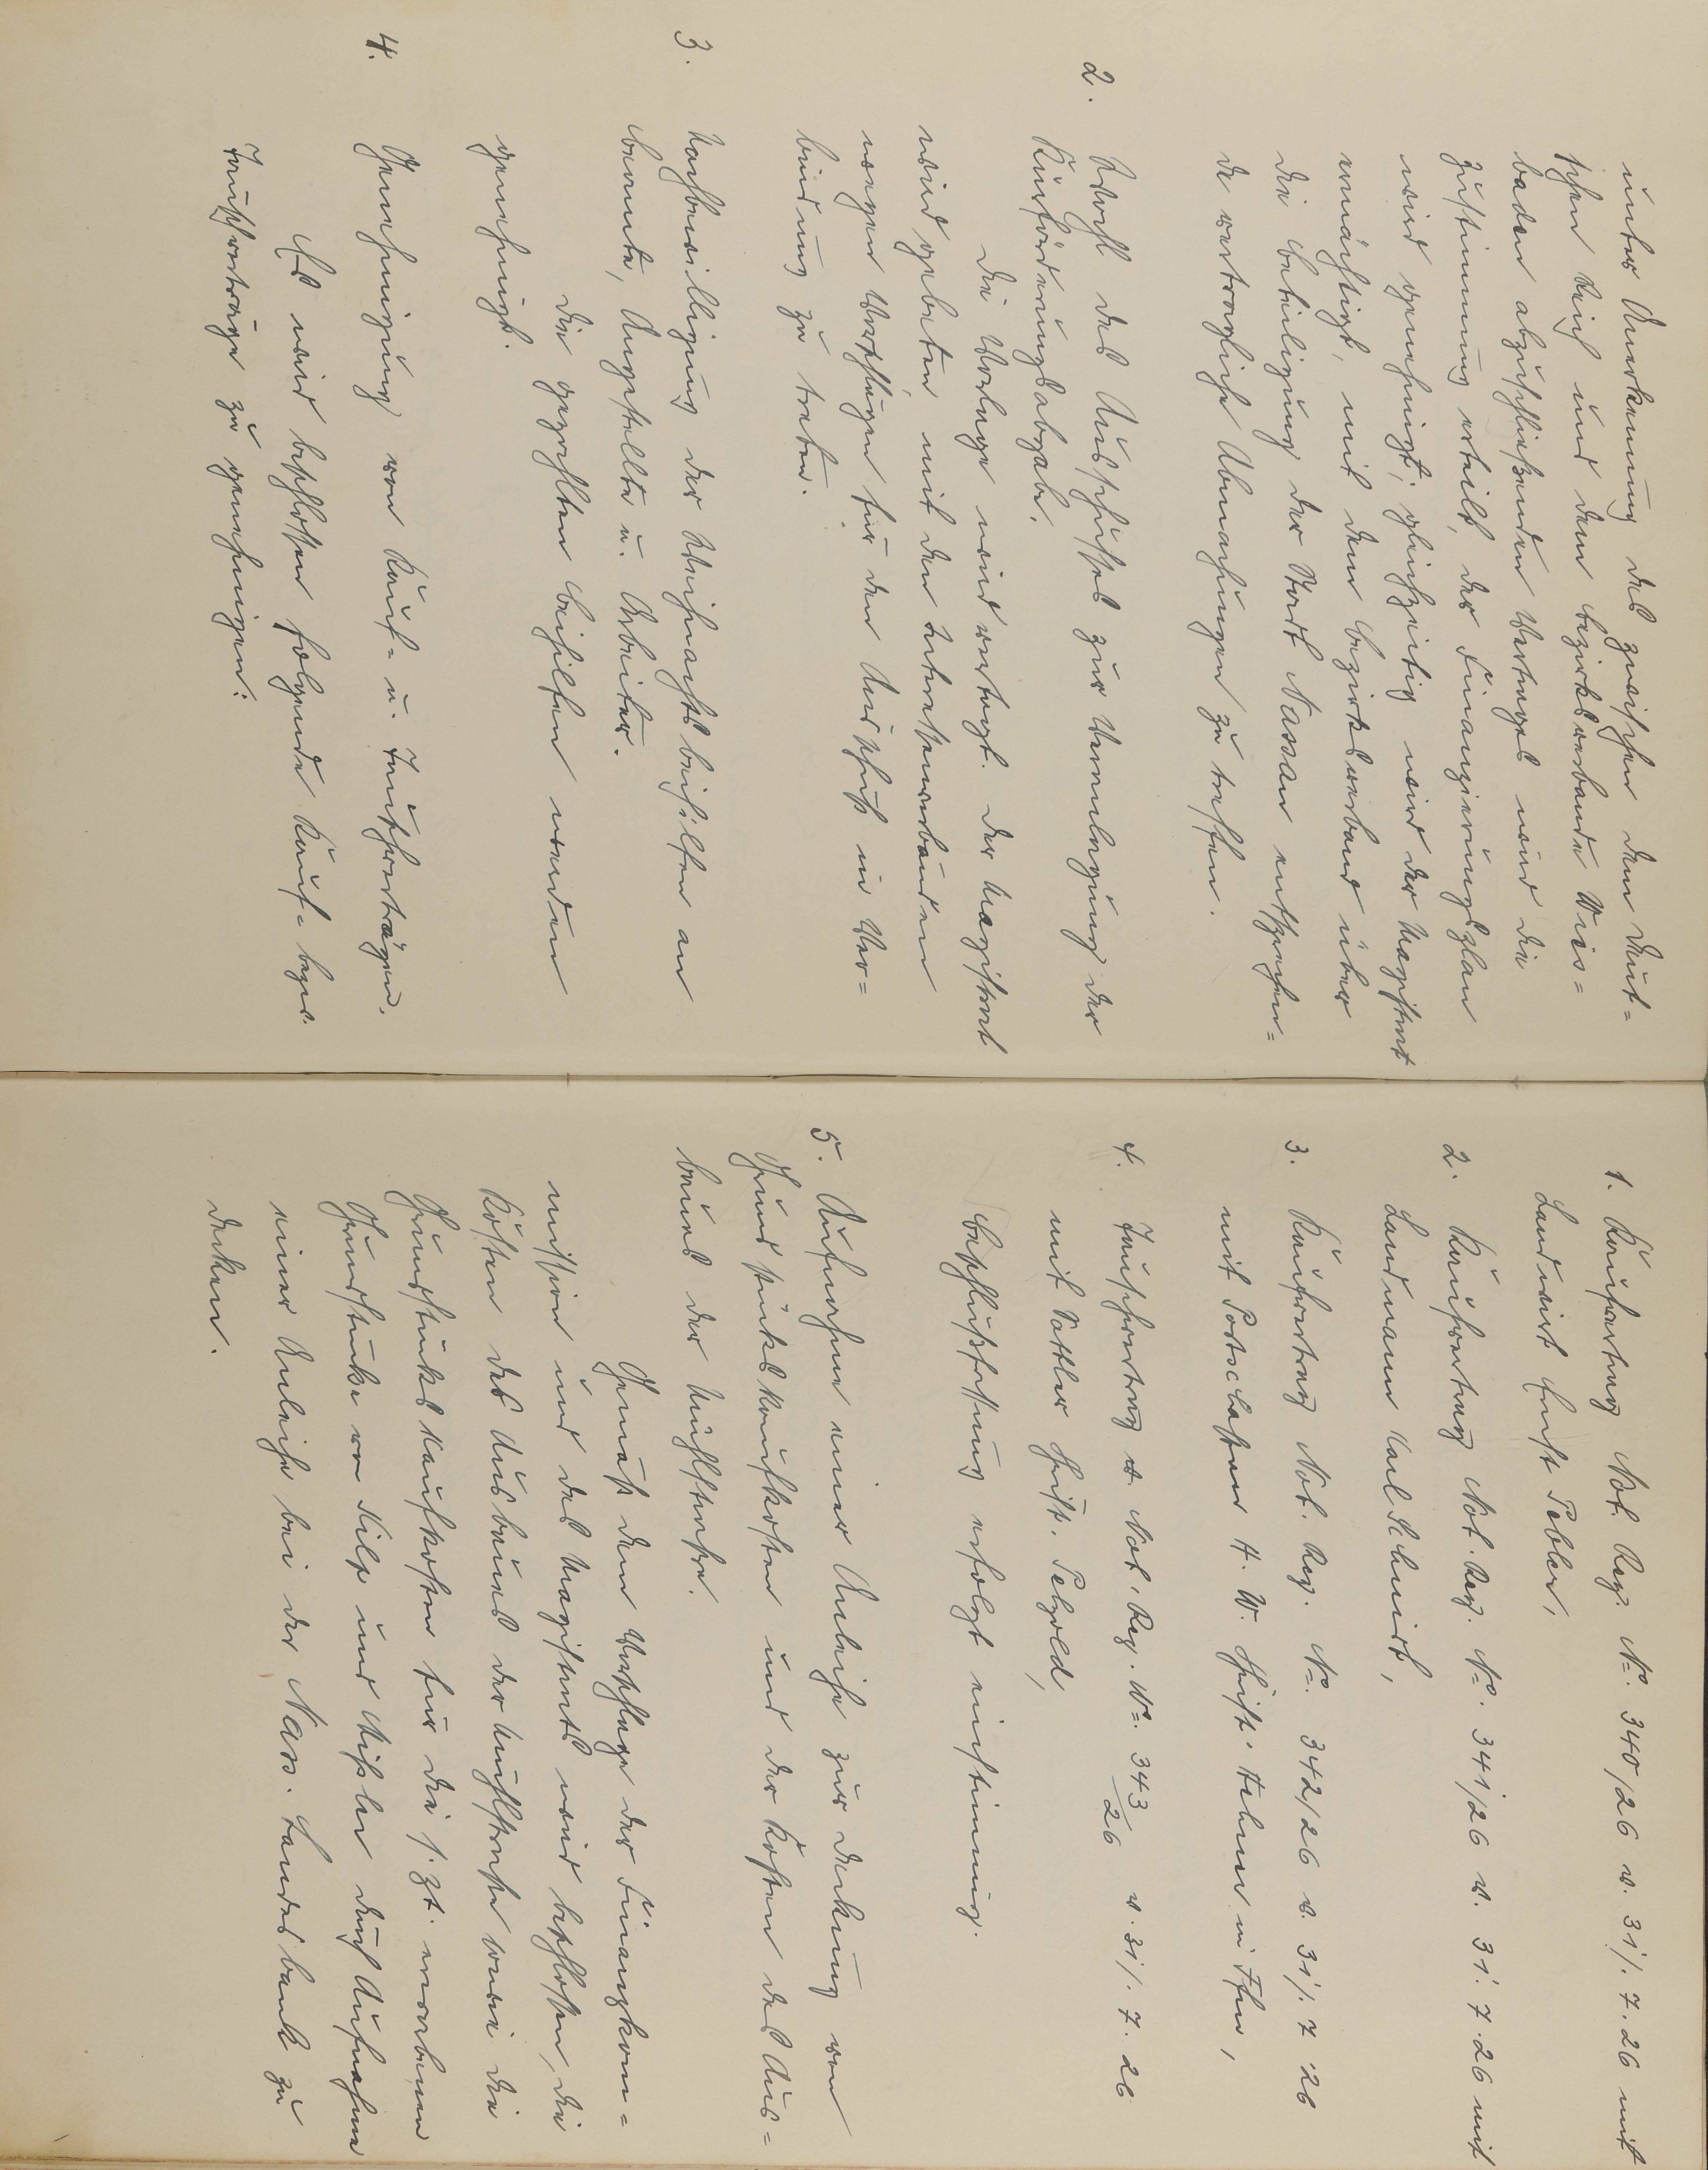 unter Anerkennung des zwischen dem Deut=
schen Reich und dem Bezirksverbande Wies=
baden abzuschließenden Vertrages wird die
Zustimmung erteilt, der Finanzierungsplan
wird genehmigt; gleichzeitig wird der Magistrat
ermächtigt, mit dem Bezirksverband über
die Beteiligung der Stadt Nassau entsprechen=
de vertragliche Abmachungen zu treffen.
2. Wahl des Ausschusses zur Veranlagung der
Kurförderungsabgabe.
Die Vorlage wird vertagt. Der Magistrat
wird gebeten, mit den Interessenverbänden
wegen Vorschlägen für den Ausschuß in Ver=
bindung zu treten.
3. Nachbewilligung der Weihnachtsbeihilfen an
Beamte, Angestellte u. Arbeiter.
Die gezahlten Beihilfen werden
genehmigt.
4. Genehmigung von Kauf= u. Tauschverträgen.
Es wird beschlossen folgende Kauf= bezw.
Tauschverträge zu genehmigen:
1. Kaufvertrag Not. Reg. No. 340/26 v. 31/. 7. 26 mit
Landwirt Ernst
2. Kaufvertrag Not. Reg. No. 341/26 v. 31. 7. 26 mit
Landmann Karl Schmidt,
3. Kaufvertrag Not. Reg. No. 342/26 v. 31/. 7. 26
mit H. W. in
4. Tauschvertrag Not. Reg. No. 343/26 v. 31/. 7. 26
mit Sattler Christ. Petzold,
Beschlußfassung erfolgt einstimmig.
5. Aufnahme einer Anleihe zur Deckung von
Grundstückskaufkosten und der Kosten des Aus=
baues der Mühlstraße.
Gemäß dem Vorschlage der Finanzkom=
mission und des Magistrats wird beschlossen, die
Kosten des Ausbaues der Mühlstraße sowie die
Grundstückskaufkosten für die s. Zt. erworbenen
Grundstücke von und durch Aufnahme
einer Anleihe bei der Nass. Landesbank zu
decken.